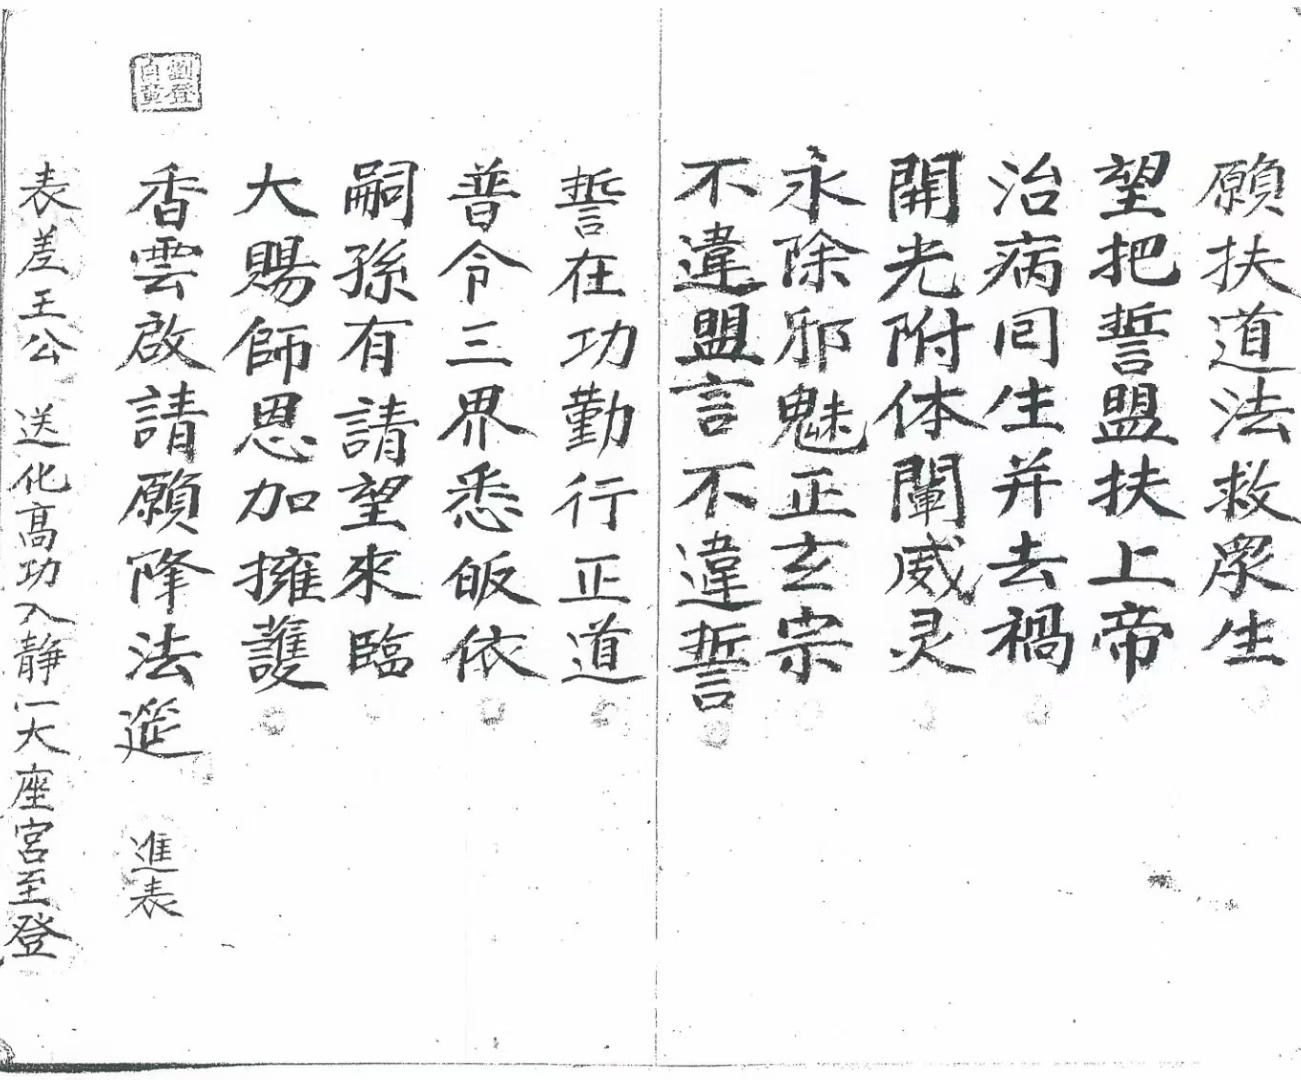 願扶道法救眾生
望把誓盟扶上帝
治病囘生并去禍
開光附体闡威灵
永除邪魅正玄宗
不違盟言不違誓
誓在功勤行正道
普令三界悉皈依
嗣孫有請望來臨
大賜師恩加擁護
香雲啟請願降法筵 進表
表差王公 送化高功入静一大座宮至登